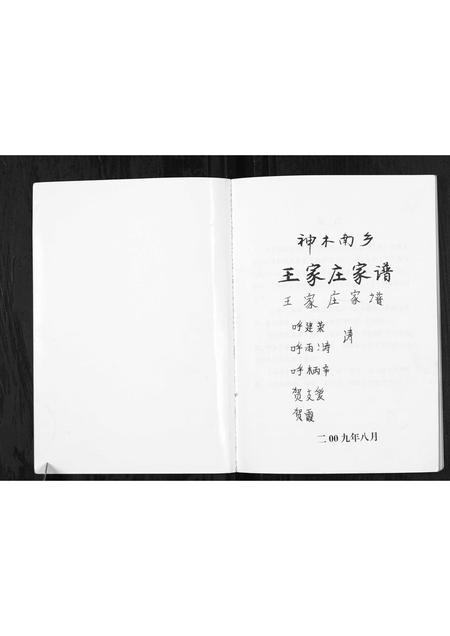 神木南乡
王家庄家谱
王家庄家谱
呼建荣
涛
呼雨涛
呼柄帝
贺文爱
贺霞
二00九年八月